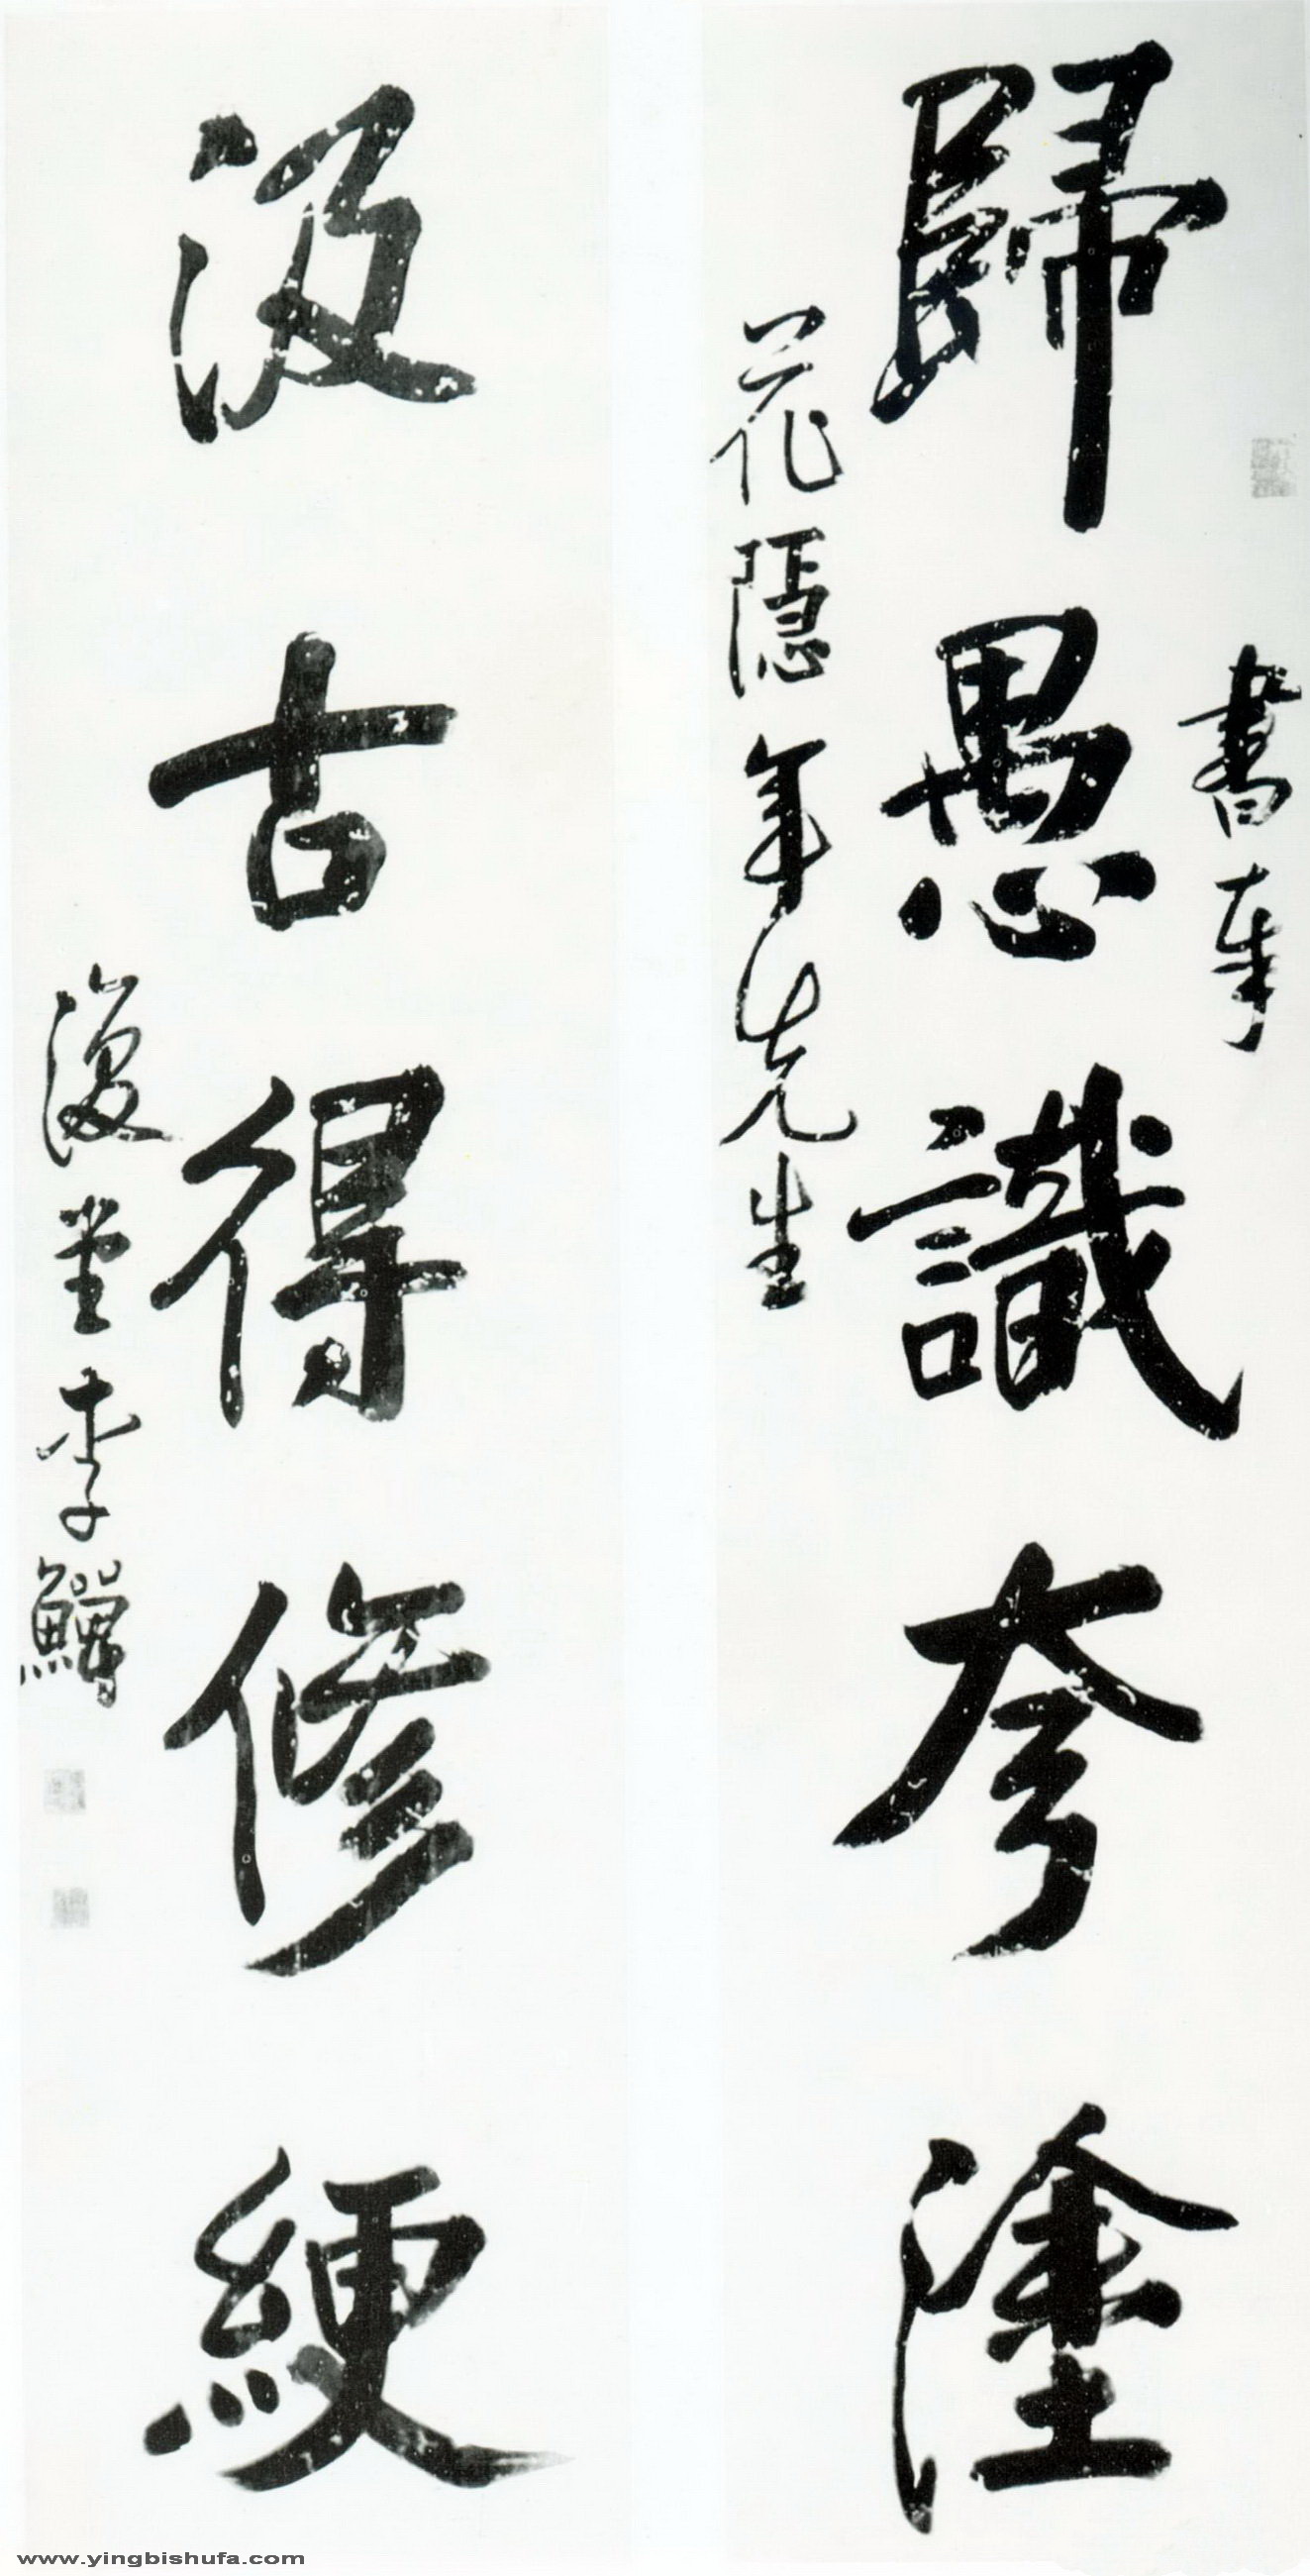 書奉
歸愚識夸塗
花隱年先生
汲古得修綆
復堂李鱓
www.yingbishufa.com